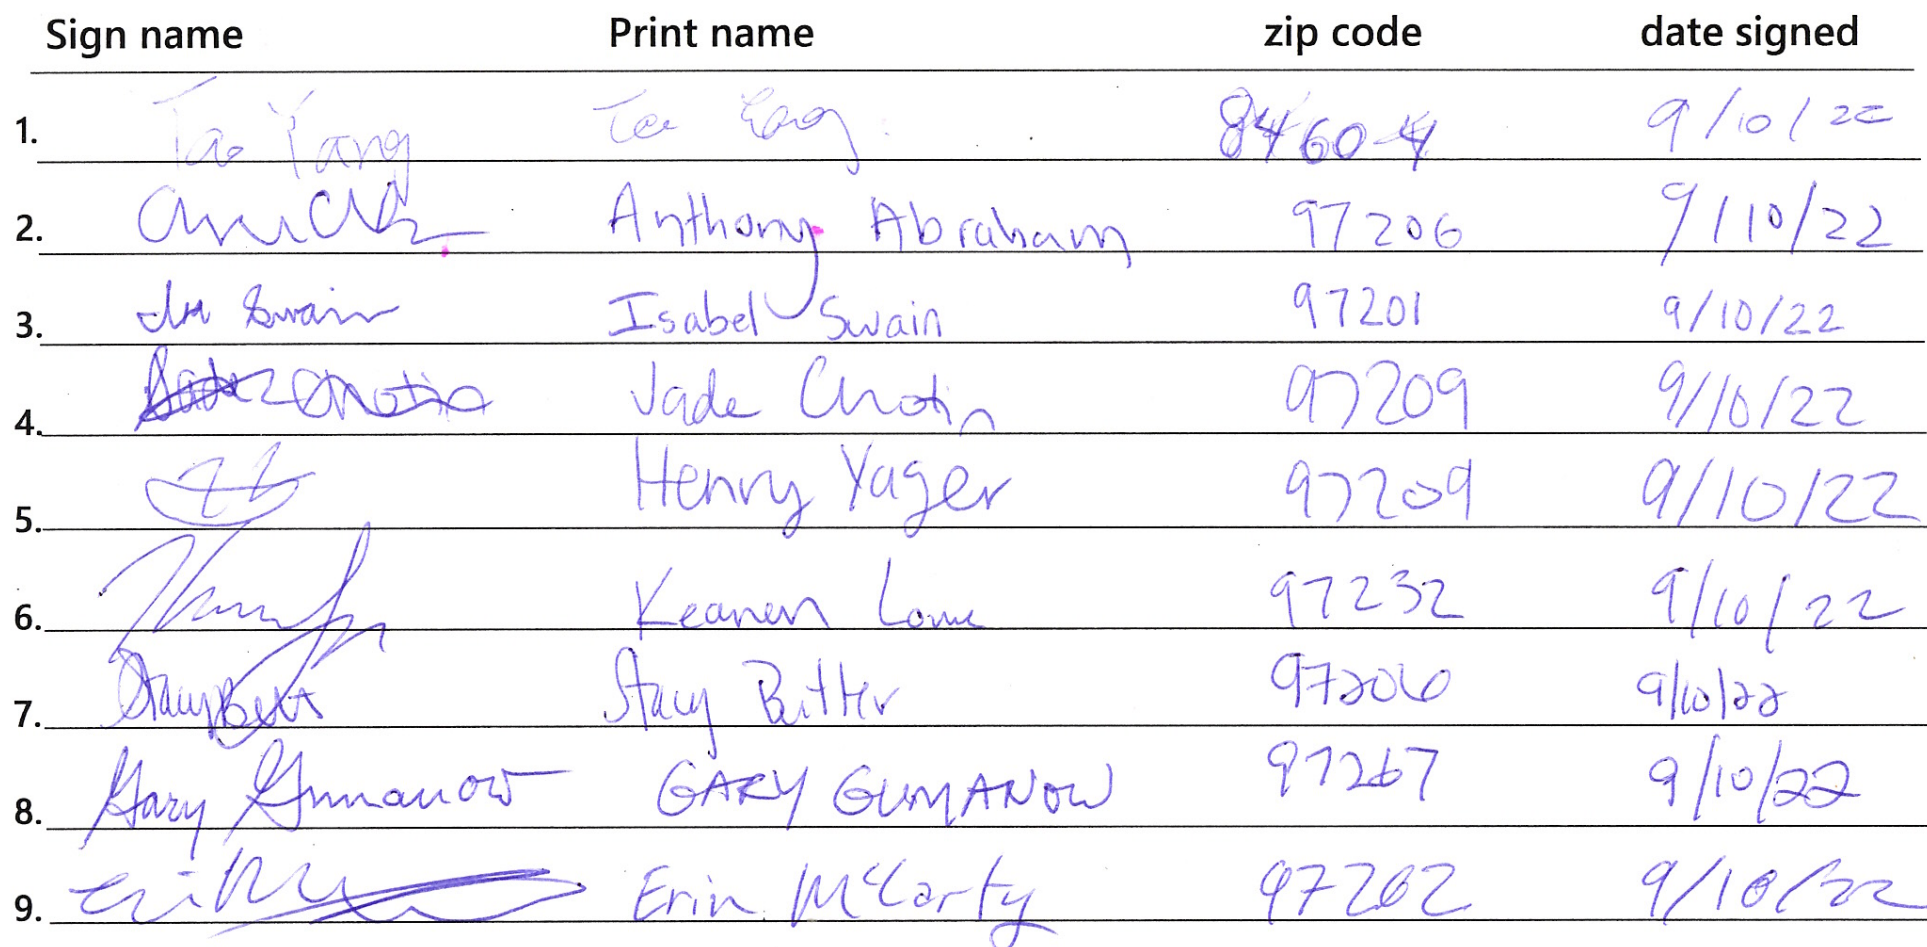 Sign name Print name zip code date signed
1. Tao Yang Tao Yang 84604 9/10/22
2. Anthony Abraham 97206 9/10/22
3. Swain Isabel Swain 97201 9/10/22
4. Jade Chotin Jade Chotin 97209 9/10/22
5. Henry Yager 97209 9/10/22
6. Keanen Lowe 97232 9/10/22
7. Stacy Stacy Butter 97206 9/10/22
8. Gary Gumanow GARY GUMANOW 97267 9/10/22
9. Erin McCarty 97202 9/10/22